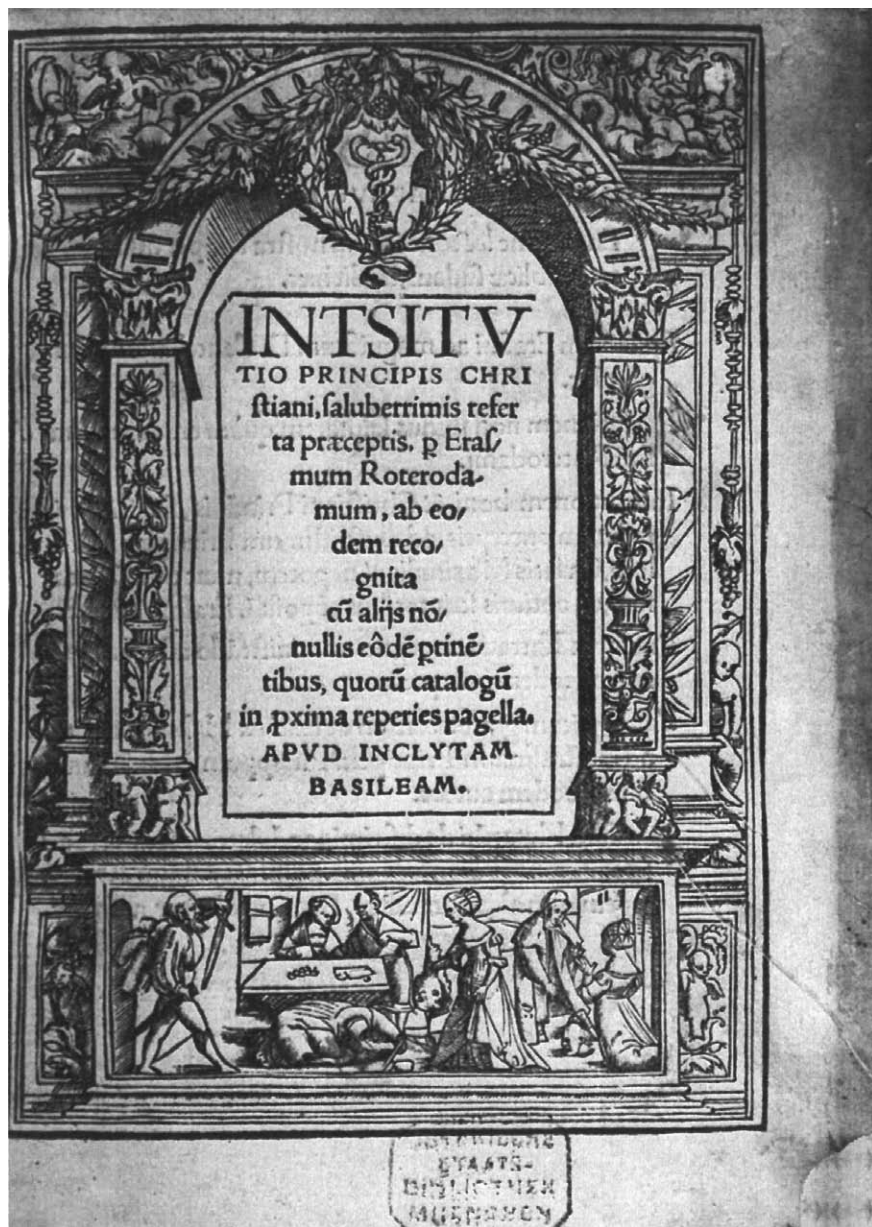 INTSITV
TIO PRINCIPIS CHRI
ſtiani, ſaluberrimis refer
ta præceptis, ꝑ Eraſ/
mum Roteroda/
mum, ab eo/
dem reco/
gnita
cū alijs nō/
nullis eôdē ꝑtinē/
tibus, quorū catalogū
in ꝓxima reperies pagella.
APVD INCLYTAM
BASILEAM.
STAATS-
BIBLIOTHEK
MUENCHEN